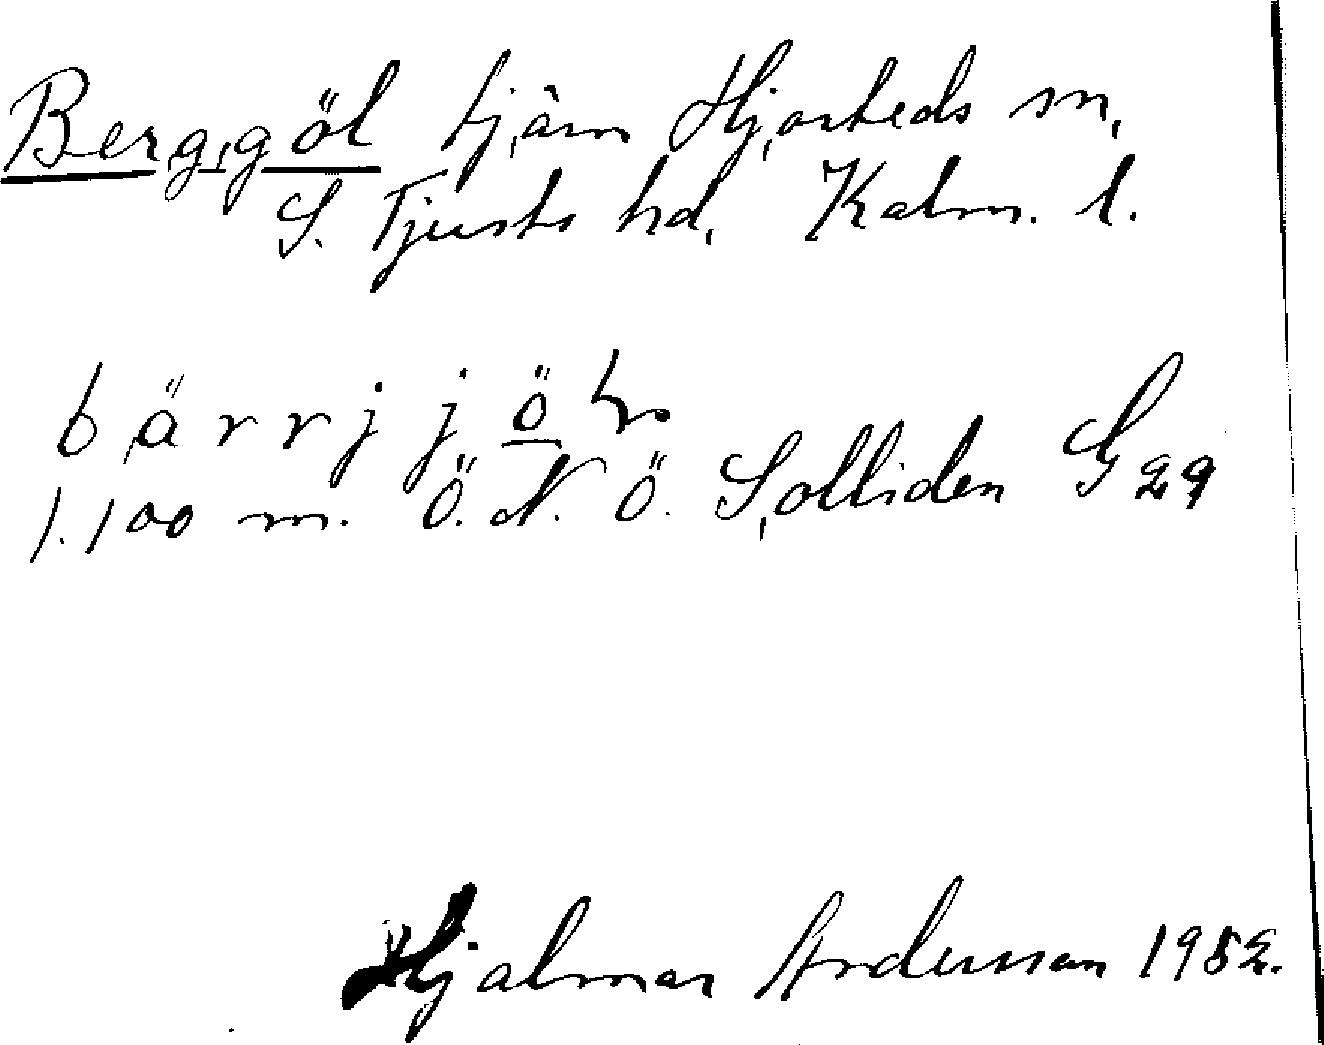 Berggöl tjärn Hjorteds sn,
S. Tjusts hd, Kalm. l.
bärrjjöl
1.100 m. Ö.N.Ö. Solliden G29
Hjalmar Andersson 1952.